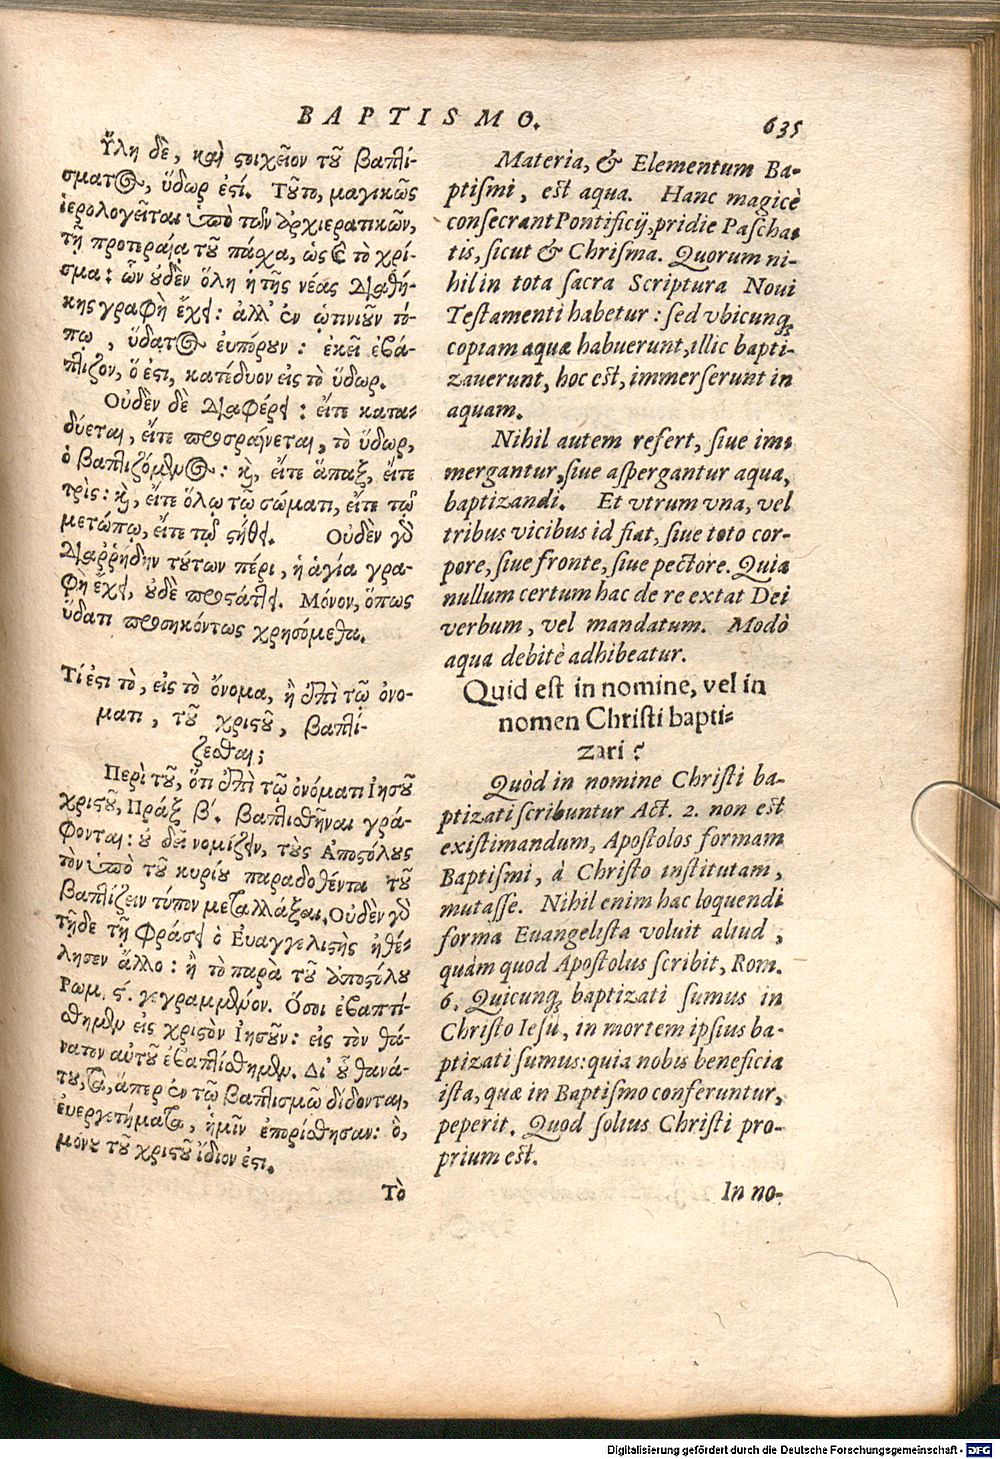 BAPTISMO.
635
Ὕλη δὲ, καὶ ϛοιχεῖον τοῦ βαπτί-
σματος, ὕδωρ ἐϛί. Τοῦτο, μαγικῶς
ἱερολογεῖται ὑπὸ τῶν ἀρχιερατικῶν,
τῇ προτεραίᾳ τοῦ πάσχα, ὡς καὶ τὸ χρί-
σμα: ὧν οὐδὲν ὅλη ἡ τῆς νέας Διαθή-
κης γραφὴ ἔχει: ἀλλ' ἐν ᾡτινιοῦν τό-
πῳ, ὕδατος εὐπόρουν: ἐκεῖ ἐβά-
πτιζον, ὅ ἐϛι, κατέδυον εἰς τὸ ὕδωρ.
Οὐδὲν δὲ Διαφέρει: εἴτε κατα-
δύεται, εἴτε προσραίνεται, τὸ ὕδωρ,
ὁ βαπτιζόμενος: καὶ, εἴτε ἅπαξ, εἴτε
τρὶς: καὶ, εἴτε ὅλῳ τῷ σώματι, εἴτε τῷ
μετώπῳ, εἴτε τῷ ϛήθει. Οὐδὲν γὰρ
Διαῤῥήδην τούτων πέρι, ἡ ἁγία γρα-
φὴ ἔχει, οὐδὲ προστάττει. Μόνον, ὅπως
ὕδατι προσηκόντως χρησόμεθα.
Τί ἐϛι τὸ, εἰς τὸ ὄνομα, ἢ ἐπὶ τῷ ὀνό-
ματι, τοῦ χριϛοῦ, βαπτί-
ζεσθαι;
Περὶ τοῦ, ὅτι ἐπὶ τῷ ὀνόματι Ἰησοῦ
χριϛοῦ, Πράξ β΄. βαπτισθῆναι γρά-
φονται: οὐ δεῖ νομίζειν, τοὺς Ἀποϛόλους
τὸν ὑπὸ τοῦ κυρίου παραδοθέντα τοῦ
βαπτίζειν τύπον μεταλλάξαι. Οὐδὲν γὰρ
τῇδε τῇ φράσει ὁ Εὐαγγελιϛὴς ἠθέ-
λησεν ἄλλο: ἢ τὸ παρὰ τοῦ ἀποϛόλου
Ρωμ. ϛ. γεγραμμένον. Ὅσοι ἐβαπτί-
σθημεν εἰς χριϛὸν Ἰησοῦν: εἰς τὸν θά-
νατον αὐτοῦ ἐβαπτίσθημεν. Δι' οὗ θανά-
του, τὰ, ἅπερ ἐν τῷ βαπτισμῷ δίδονται,
εὐεργετήματα, ἡμῖν ἐπορίσθησαν: ὃ,
μόνου τοῦ χριϛοῦ ἴδιον ἐϛι.
Τὸ
Materia, & Elementum Ba-
ptiſmi, est aqua. Hanc magicè
conſecrant Pontificij, pridie Paſcha-
tis, ſicut & Chriſma. Quorum ni-
hil in tota ſacra Scriptura Noui
Teſtamenti habetur: ſed vbicunq;
copiam aquæ habuerunt, illic bapti-
zauerunt, hoc eſt, immerſerunt in
aquam.
Nihil autem refert, ſiue im-
mergantur, ſiue aſpergantur aqua,
baptizandi. Et vtrum vna, vel
tribus vicibus id fiat, ſiue toto cor-
pore, ſiue fronte, ſiue pectore. Quia
nullum certum hac de re extat Dei
verbum, vel mandatum. Modò
aqua debitè adhibeatur.
Quid eſt in nomine, vel in
nomen Chriſti bapti-
zari?
Quòd in nomine Chriſti ba-
ptizati ſcribuntur Act. 2. non eſt
exiſtimandum, Apoſtolos formam
Baptiſmi, à Chriſto inſtitutam,
mutaſſe. Nihil enim hac loquendi
forma Euangeliſta voluit aliud,
quàm quod Apoſtolus ſcribit, Rom.
6. Quicunq; baptizati ſumus in
Chriſto Ieſu, in mortem ipſius ba-
ptizati ſumus: quia nobis beneficia
iſta, quæ in Baptiſmo conferuntur,
peperit. Quod ſolius Chriſti pro-
prium eſt.
In no-
Digitalisierung gefördert durch die Deutsche Forschungsgemeinschaft - DFG